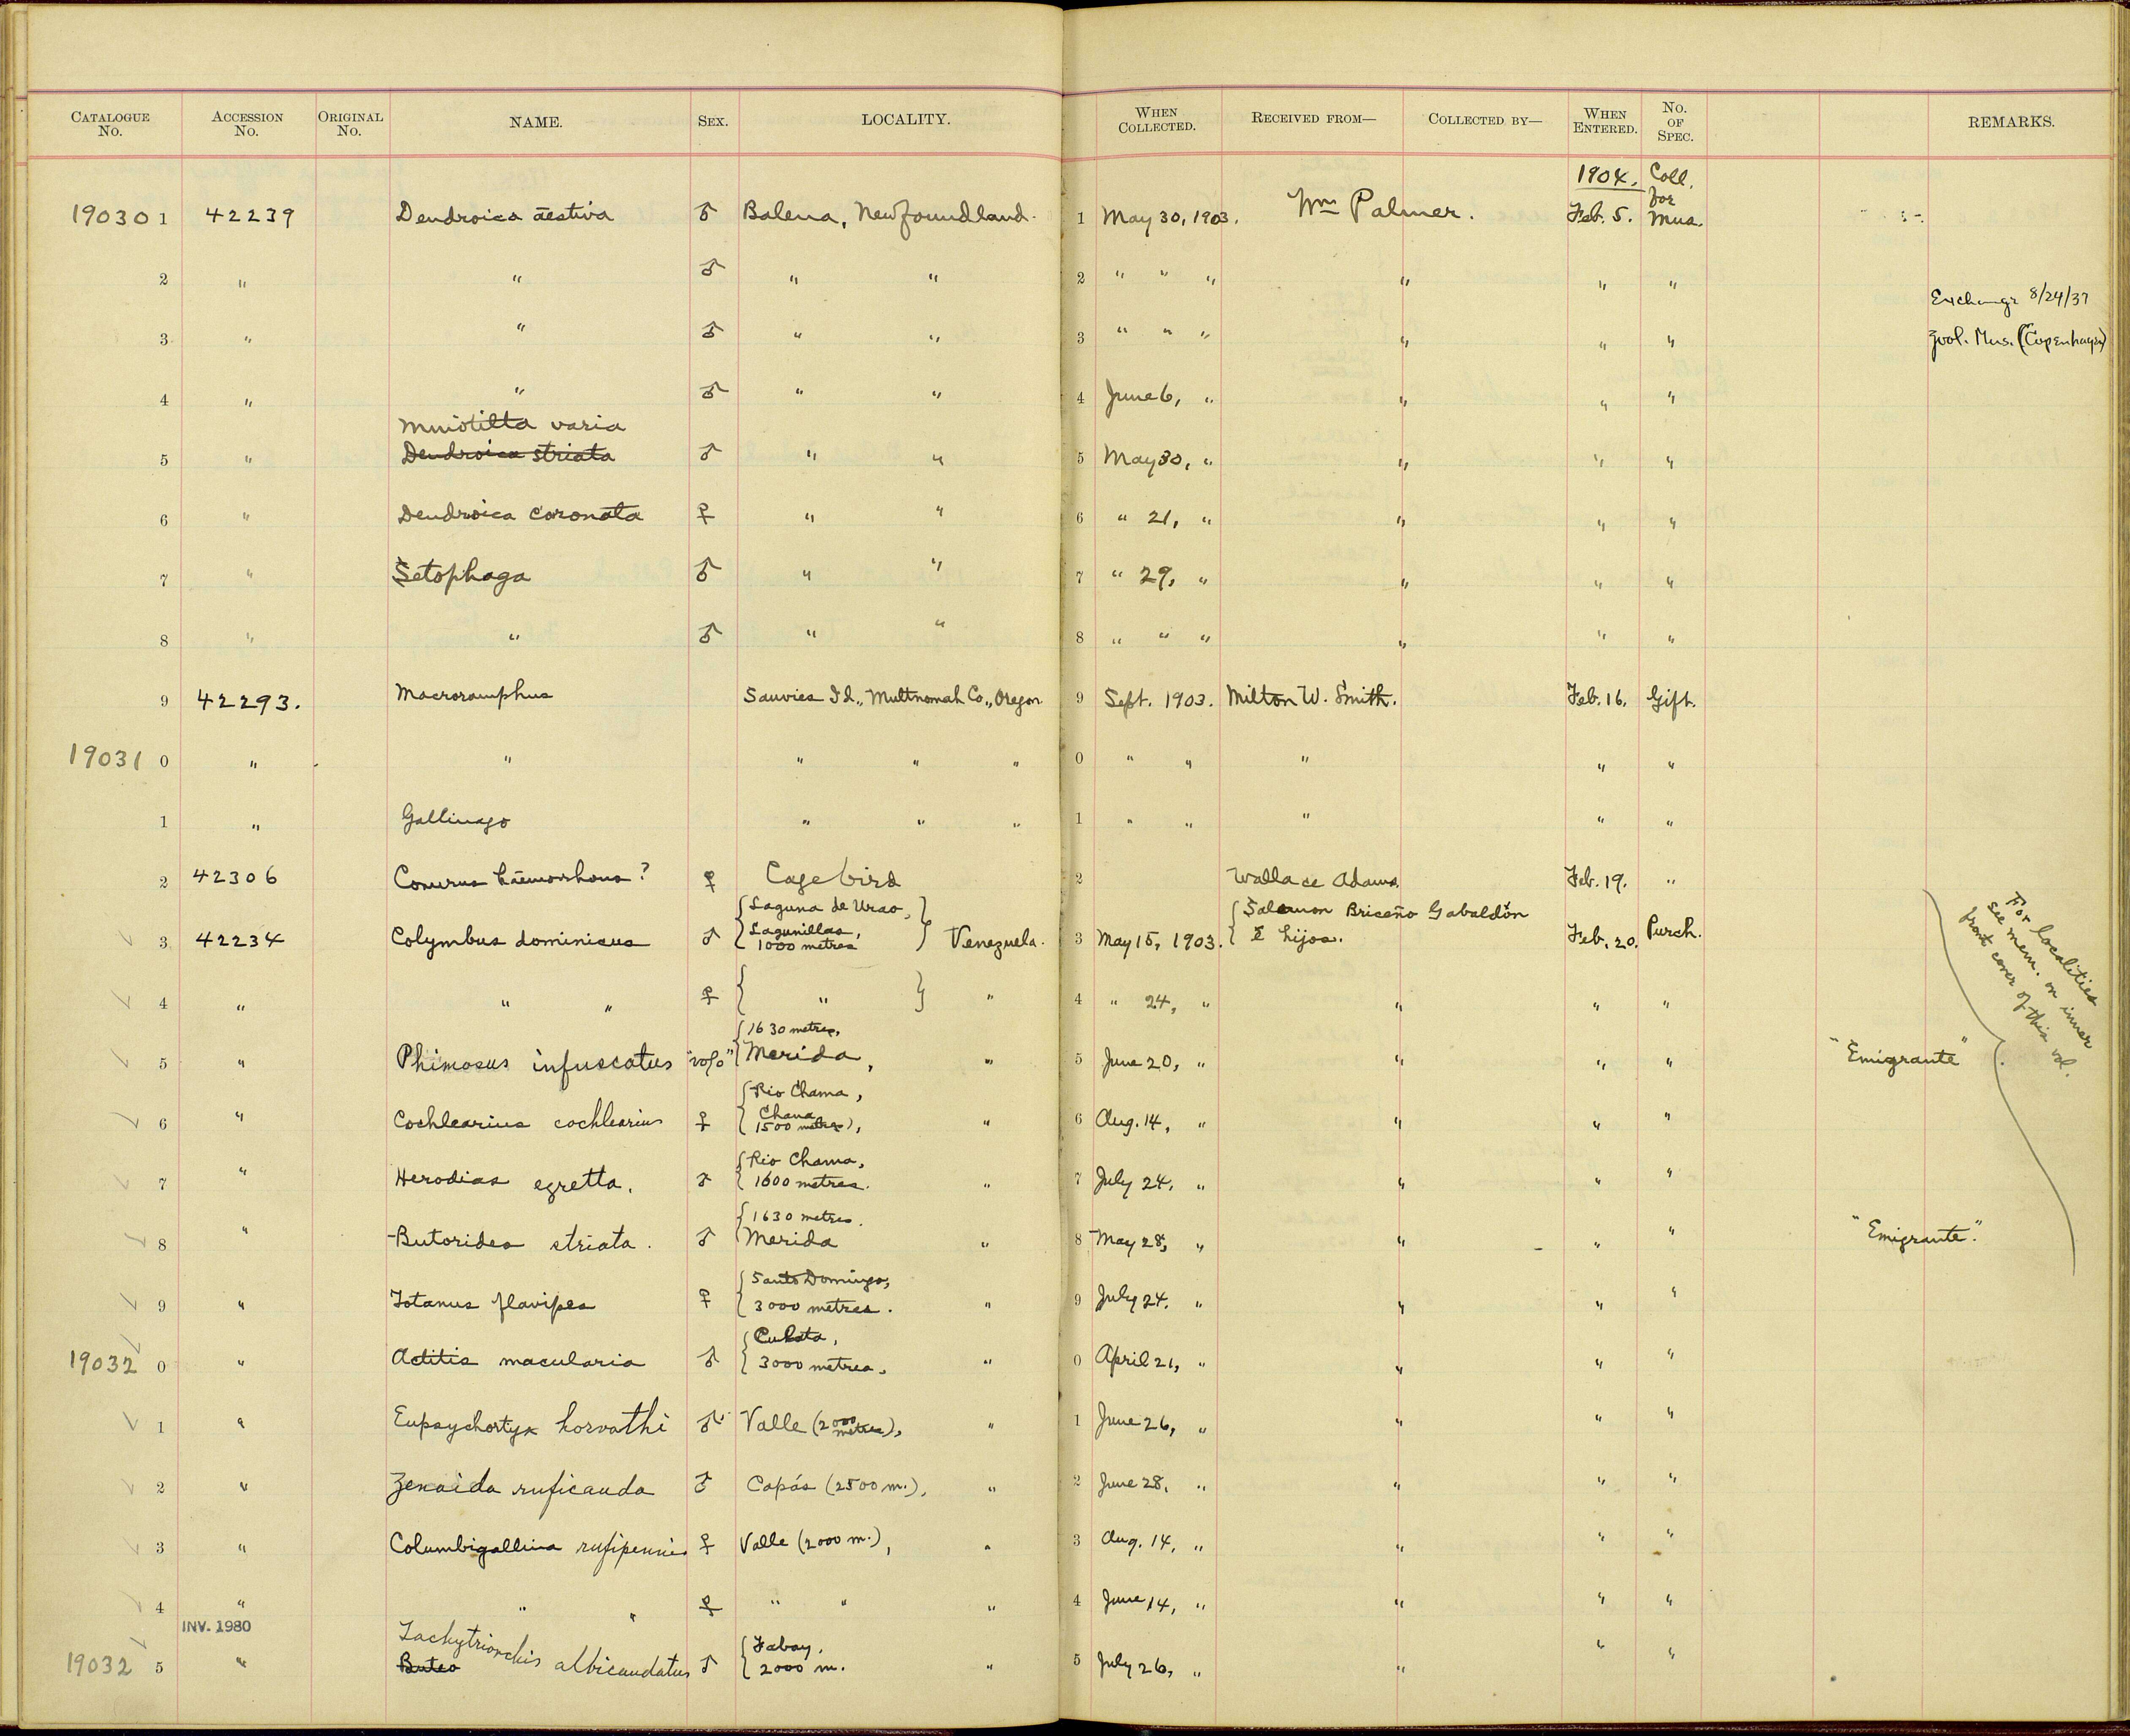 CATALOGUE No. ACCESSION No. ORIGINAL No. NAME. SEX. LOCALITY. WHEN COLLECTED. RECEIVED FROM— COLLECTED BY— WHEN ENTERED. No. OF SPEC. REMARKS.
1904. Coll. for
19030 1 42239 Dendroica æstiva ♂ Balena, Newfoundland. 1 May 30, 1903. Wm Palmer. Feb. 5. Mus.
2 " " ♂ " " 2 " " " " " "
Exchange 8/24/37
3 " " ♂ " " 3 " " " " " " Zool. Mus. (Copenhagen)
4 " " ♂ " " 4 June 6, " " " "
Mniotilta varia
5 " Dendroica striata ♂ " " 5 May 30, " " " "
6 " Dendroica coronata ♀ " " 6 " 21, " " " "
7 " Setophaga ♂ " " 7 " 29, " " " "
8 " " ♂ " " 8 " " " " " "
9 42293. Macroramphus Sauvies Id., Multnomah Co., Oregon. 9 Sept. 1903. Milton W. Smith. Feb. 16. Gift.
19031 0 " " " " " 0 " " " " "
1 " Gallinago " " " 1 " " " " "
2 42306 Conurus hæmorrhous? ♀ Cage bird 2 Wallace Adams. Feb. 19. "
{Laguna de Urao,} {Salomon Briceño Gabaldón
3 42234 Colymbus dominicus ♂ {Lagunillas, 1000 metres} Venezuela. 3 May 15, 1903. { & hijos. Feb. 20. Purch.
For localities see mem. on inner front cover of this vol.
4 " " " ♀ { " } " 4 " 24, " " " "
{1630 metres,
5 " Phimosus infuscatus {Merida, " 5 June 20, " " " " "Emigrante"
{Rio Chama,
6 " Cochlearius cochlearius ♀ {Chama 1500 metres), " 6 Aug. 14, " " " "
{Rio Chama,
7 " Herodias egretta. ♂ {1600 metres. " 7 July 24, " " " "
{1630 metres.
8 " Butorides striata. ♂ {Merida " 8 May 28, " " " " "Emigrante".
{Santo Domingo,
9 " Totanus flavipes ♀ {3000 metres. " 9 July 24. " " " "
19032 0 " Actitis macularia ♂ {3000 metres. " 0 April 21, " " " "
1 " Eupsychortyx horvathi ♂ Valle (2000 metres), " 1 June 26, " " " "
2 " Zenaida ruficauda ♂ Capás (2500 m.), " 2 June 28, " " " "
3 " Columbigallina rufipennis ♀ Valle (2000 m.), " 3 Aug. 14, " " " "
4 " " " ♀ " " " 4 June 14, " " " "
INV. 1980
Tachytriorchis {Tabay,
19032 5 " Buteo albicaudatus ♂ {2000 m. " 5 July 26, " " " "